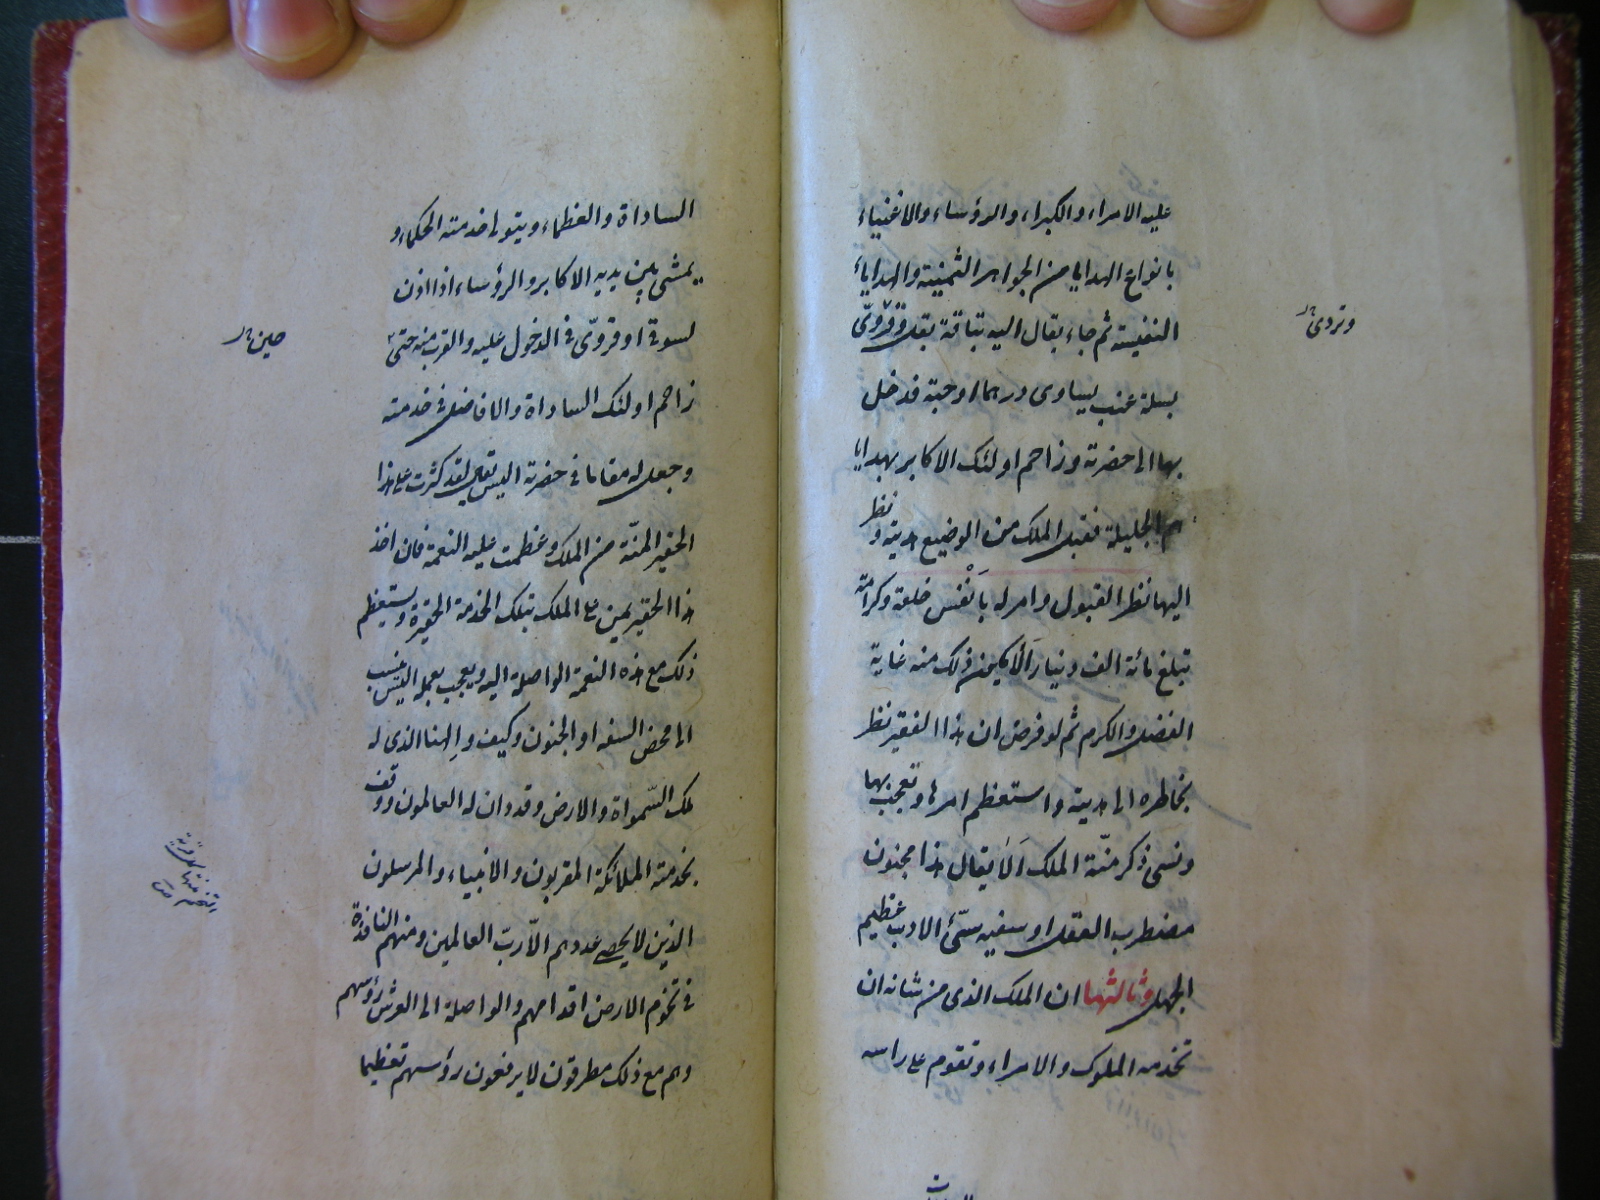 عليه الامراء والكبراء والرؤساء والاغنياء
بانواع الهدايا من الجواهر الثمينة والهدايا
النفيسة ثم جاء بقال اليه بباقة بقل وقروىّ
بسلة عنب يساوى درهما او حبة فدخل
بها الى حضرته وزاحم اولئك الاكابر بهدايا
هم الجليلة فقبل الملك من الوضيع هديته ونظر
اليها نظر القبول وامر له بَانْفس خلعة وكرامة
تبلغ مائة الف دينار اَلَا يكون ذلك منه غاية
الفضل والكرم ثم لو فرض ان هذا الفقير نظر
بخاطره الى هديته واستعظم امرها وتعجب بها
ونسى ذكر منّة الملك اَلَا يقال هذا مجنون
مضطرب العقل او سفيه سئّ الادب عظيم
الجهل وثالثها ان الملك الذى من شانه ان
تخدمه الملوك والامراء وتقوم على راسه
وتردى
السادات والعظماء ويتولى خدمته الحكماء و
يمشى بين يديه الاكابر والرؤساء اذا اذن
لسوقى او قروىّ فى الدخول عليه والقرب منه حتىّ
زاحم اولئك السادات والافاضل فى خدمته
وجعل له مقاما فى حضرته اليس يقال لقد كثرت على هذا
الحقير المنّة من الملك وعظمت عليه النعمة فان اخذ
هذا الحقير يمن على الملك بتلك الخدمة الحقيرة ويستعظم
ذلك مع هذه النعمة الواصلة اليه ويعجب بعمله اليس ينسب
الى محض السفه او الجنون وكيف والهنا الذى له
ملك السّمواة والارض وقد دان له العالمون ووقف
بخدمته الملائكة المقربون والانبياء والمرسلون
الذين لا يحصى عددهم الاّ ربّ العالمين ومنهم النافذة
فى تخوم الارض اقدامهم والواصلة الى العرش رؤسهم
وهم مع ذلك مطرقون لا يرفعون رؤسهم تعظيما
حين